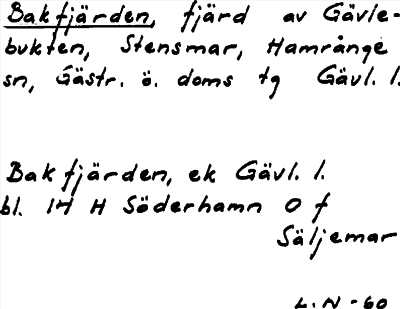 Bakfjärden, fjärd av Gävle-
bukten, Stensmar, Hamrånge
sn, Gästr. ö. doms tg Gävl. l.
Bakfjärden, ek Gävl. l.
bl. 14 H Söderhamn O f
Säljemar
L.N -60